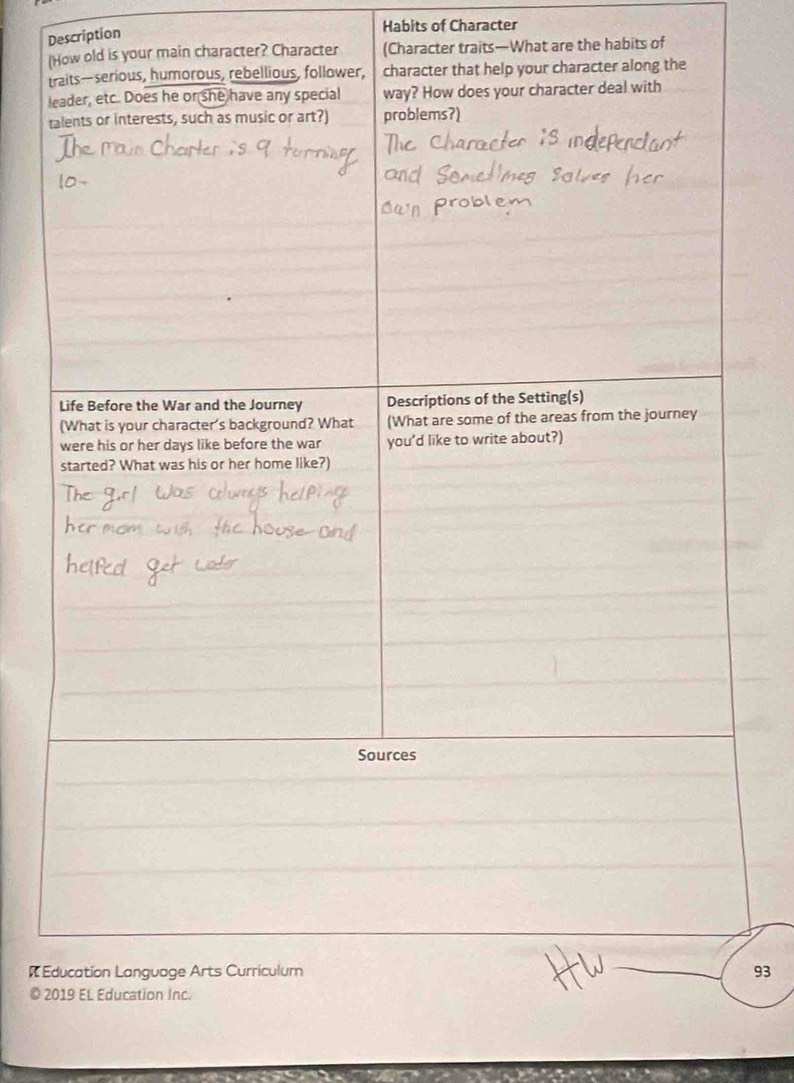 Description
(How old is your main character? Character
traits—serious, humorous, rebellious, follower,
leader, etc. Does he or she have any special
talents or interests, such as music or art?)
The main Charter is 9 turning
10
Habits of Character
(Character traits—What are the habits of
character that help your character along the
way? How does your character deal with
problems?)
The Character is independant
and Sometimes Solves her
own problem
Life Before the War and the Journey
(What is your character's background? What
were his or her days like before the war
started? What was his or her home like?)
The girl was always helping
her mom with the house and
helped get water
Descriptions of the Setting(s)
(What are some of the areas from the journey
you'd like to write about?)
Sources
HW
Education Language Arts Curriculum
© 2019 EL Education Inc.
93